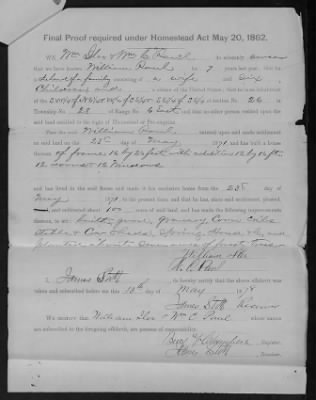 Final Proof required under Homestead Act May 20, 1862.
WE, Wm Iler & Wm C Paul do solemnly swear
that we have known William Paul for 7 years last past; that he
is head of a family consisting of a wife and six
Children and a citizen of the United States; that he is an inhabitant
of the of section No. 26 in
Township No. 23 of Range No. 6 East and that no other person resided upon the
said land entitled to the right of Homestead or Pre-emption.
That the said William Paul entered upon and made settlement
on said land on the 25th day of May 1871, and has built a house
thereon of frame 16 by 24 feet with addition 12 by 14 ft
12 doors & 12 Windows
and has lived in the said house and made it his exclusive home from the 25th day of
May 1871, to the present time, and that he has, since said settlement, plowed,
and cultivated about 100 acres of said land, and has made the following improvements
thereon, to wit: built Granary Corn Cribs
Stable & Cow Sheds, Spring House &c, and
William Iler
W. C. Paul
I, James Stott do hereby certify that the above affidavit was
taken and subscribed before me this 10th day of May 1879
James Stott Receiver
WE CERTIFY that William Iler & Wm C. Paul whose names
are subscribed to the foregoing affidavit, are persons of respectability.
Register.
James Stott Receiver.